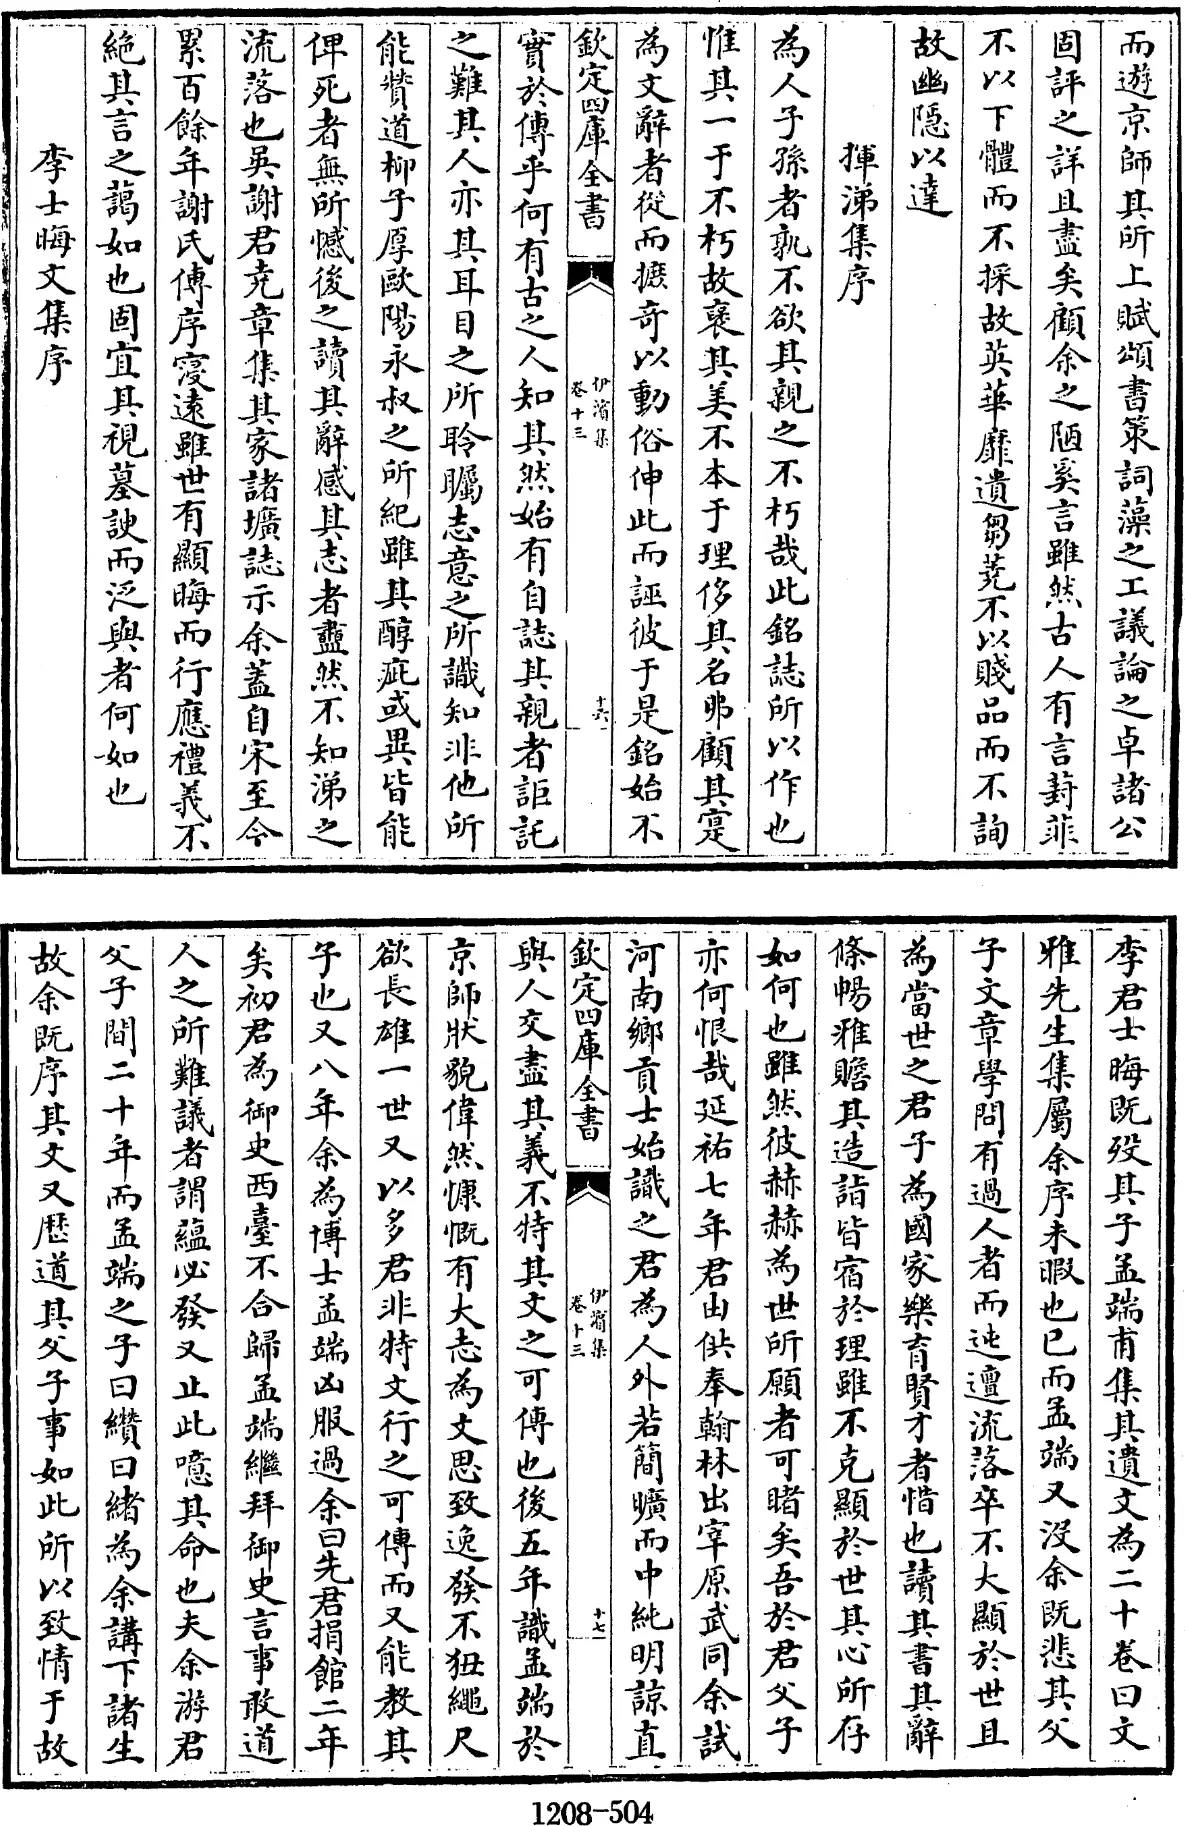 而遊京師其所上賦頌書策詞藻之工議論之卓諸公
固評之詳且盡矣顧余之陋奚言雖然古人有言葑菲
不以下體而不採故英華靡遺芻蕘不以賤品而不詢
故幽隱以達
揮涕集序
為人子孫者孰不欲其親之不朽哉此銘誌所以作也
惟其一于不朽故褒其美不本于理侈其名弗顧其寔
為文辭者從而摭奇以動俗伸此而誣彼于是銘始不
欽定四庫全書
伊濱集
卷十三
十六
實於傳乎何有古之人知其然始有自誌其親者詎託
之難其人亦其耳目之所聆矚志意之所識知非他所
能贊道柳子厚歐陽永叔之所紀雖其醇疵或異皆能
俾死者無所憾後之讀其辭感其志者衋然不知涕之
流落也吳謝君堯章集其家諸壙誌示余蓋自宋至今
累百餘年謝氏傳序寖遠雖世有顯晦而行應禮義不
絕其言之藹如也固宜其視墓諛而泛與者何如也
李士晦文集序
李君士晦既歿其子孟端甫集其遺文為二十卷曰文
雅先生集屬余序未暇也已而孟端又沒余既悲其父
子文章學問有過人者而迍邅流落卒不大顯於世且
為當世之君子為國家樂育賢才者惜也讀其書其辭
條暢雅贍其造詣皆宿於理雖不克顯於世其心所存
如何也雖然彼赫赫為世所願者可睹矣吾於君父子
亦何恨哉延祐七年君由供奉翰林出宰原武同余試
河南鄉貢士始識之君為人外若簡曠而中純明諒直
欽定四庫全書
伊濱集
卷十三
十七
與人交盡其義不特其文之可傳也後五年識孟端於
京師狀貌偉然慷慨有大志為文思致逸發不狃繩尺
欲長雄一世又以多君非特文行之可傳而又能教其
子也又八年余為博士孟端凶服過余曰先君捐館二年
矣初君為御史西臺不合歸孟端繼拜御史言事敢道
人之所難議者謂蘊必發又止此噫其命也夫余游君
父子間二十年而孟端之子曰纘曰緒為余講下諸生
故余既序其文又歷道其父子事如此所以致情于故
1208-504